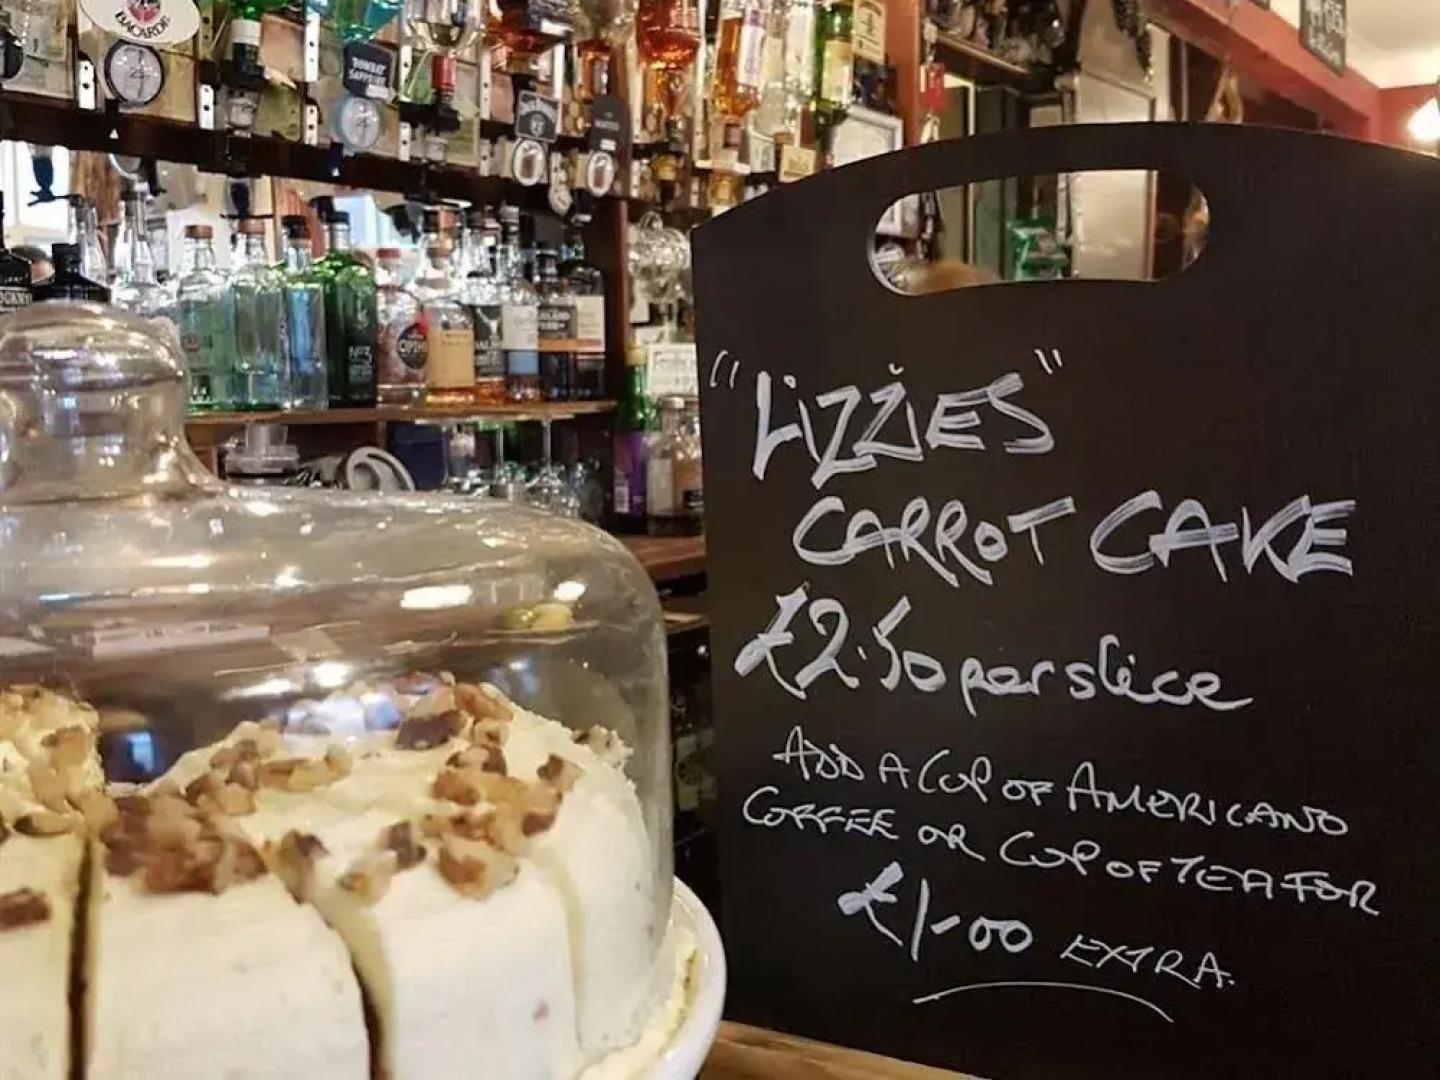 BACARDI
BOMBAY
SAPPHIRE
Nº3
OPIHR
"LiZZiES"
CARROT CAKE
£2.50 per slice
ADD A CUP OF AMERICANO
COFFEE OR CUP OF TEA FOR
£1-00 EXTRA.